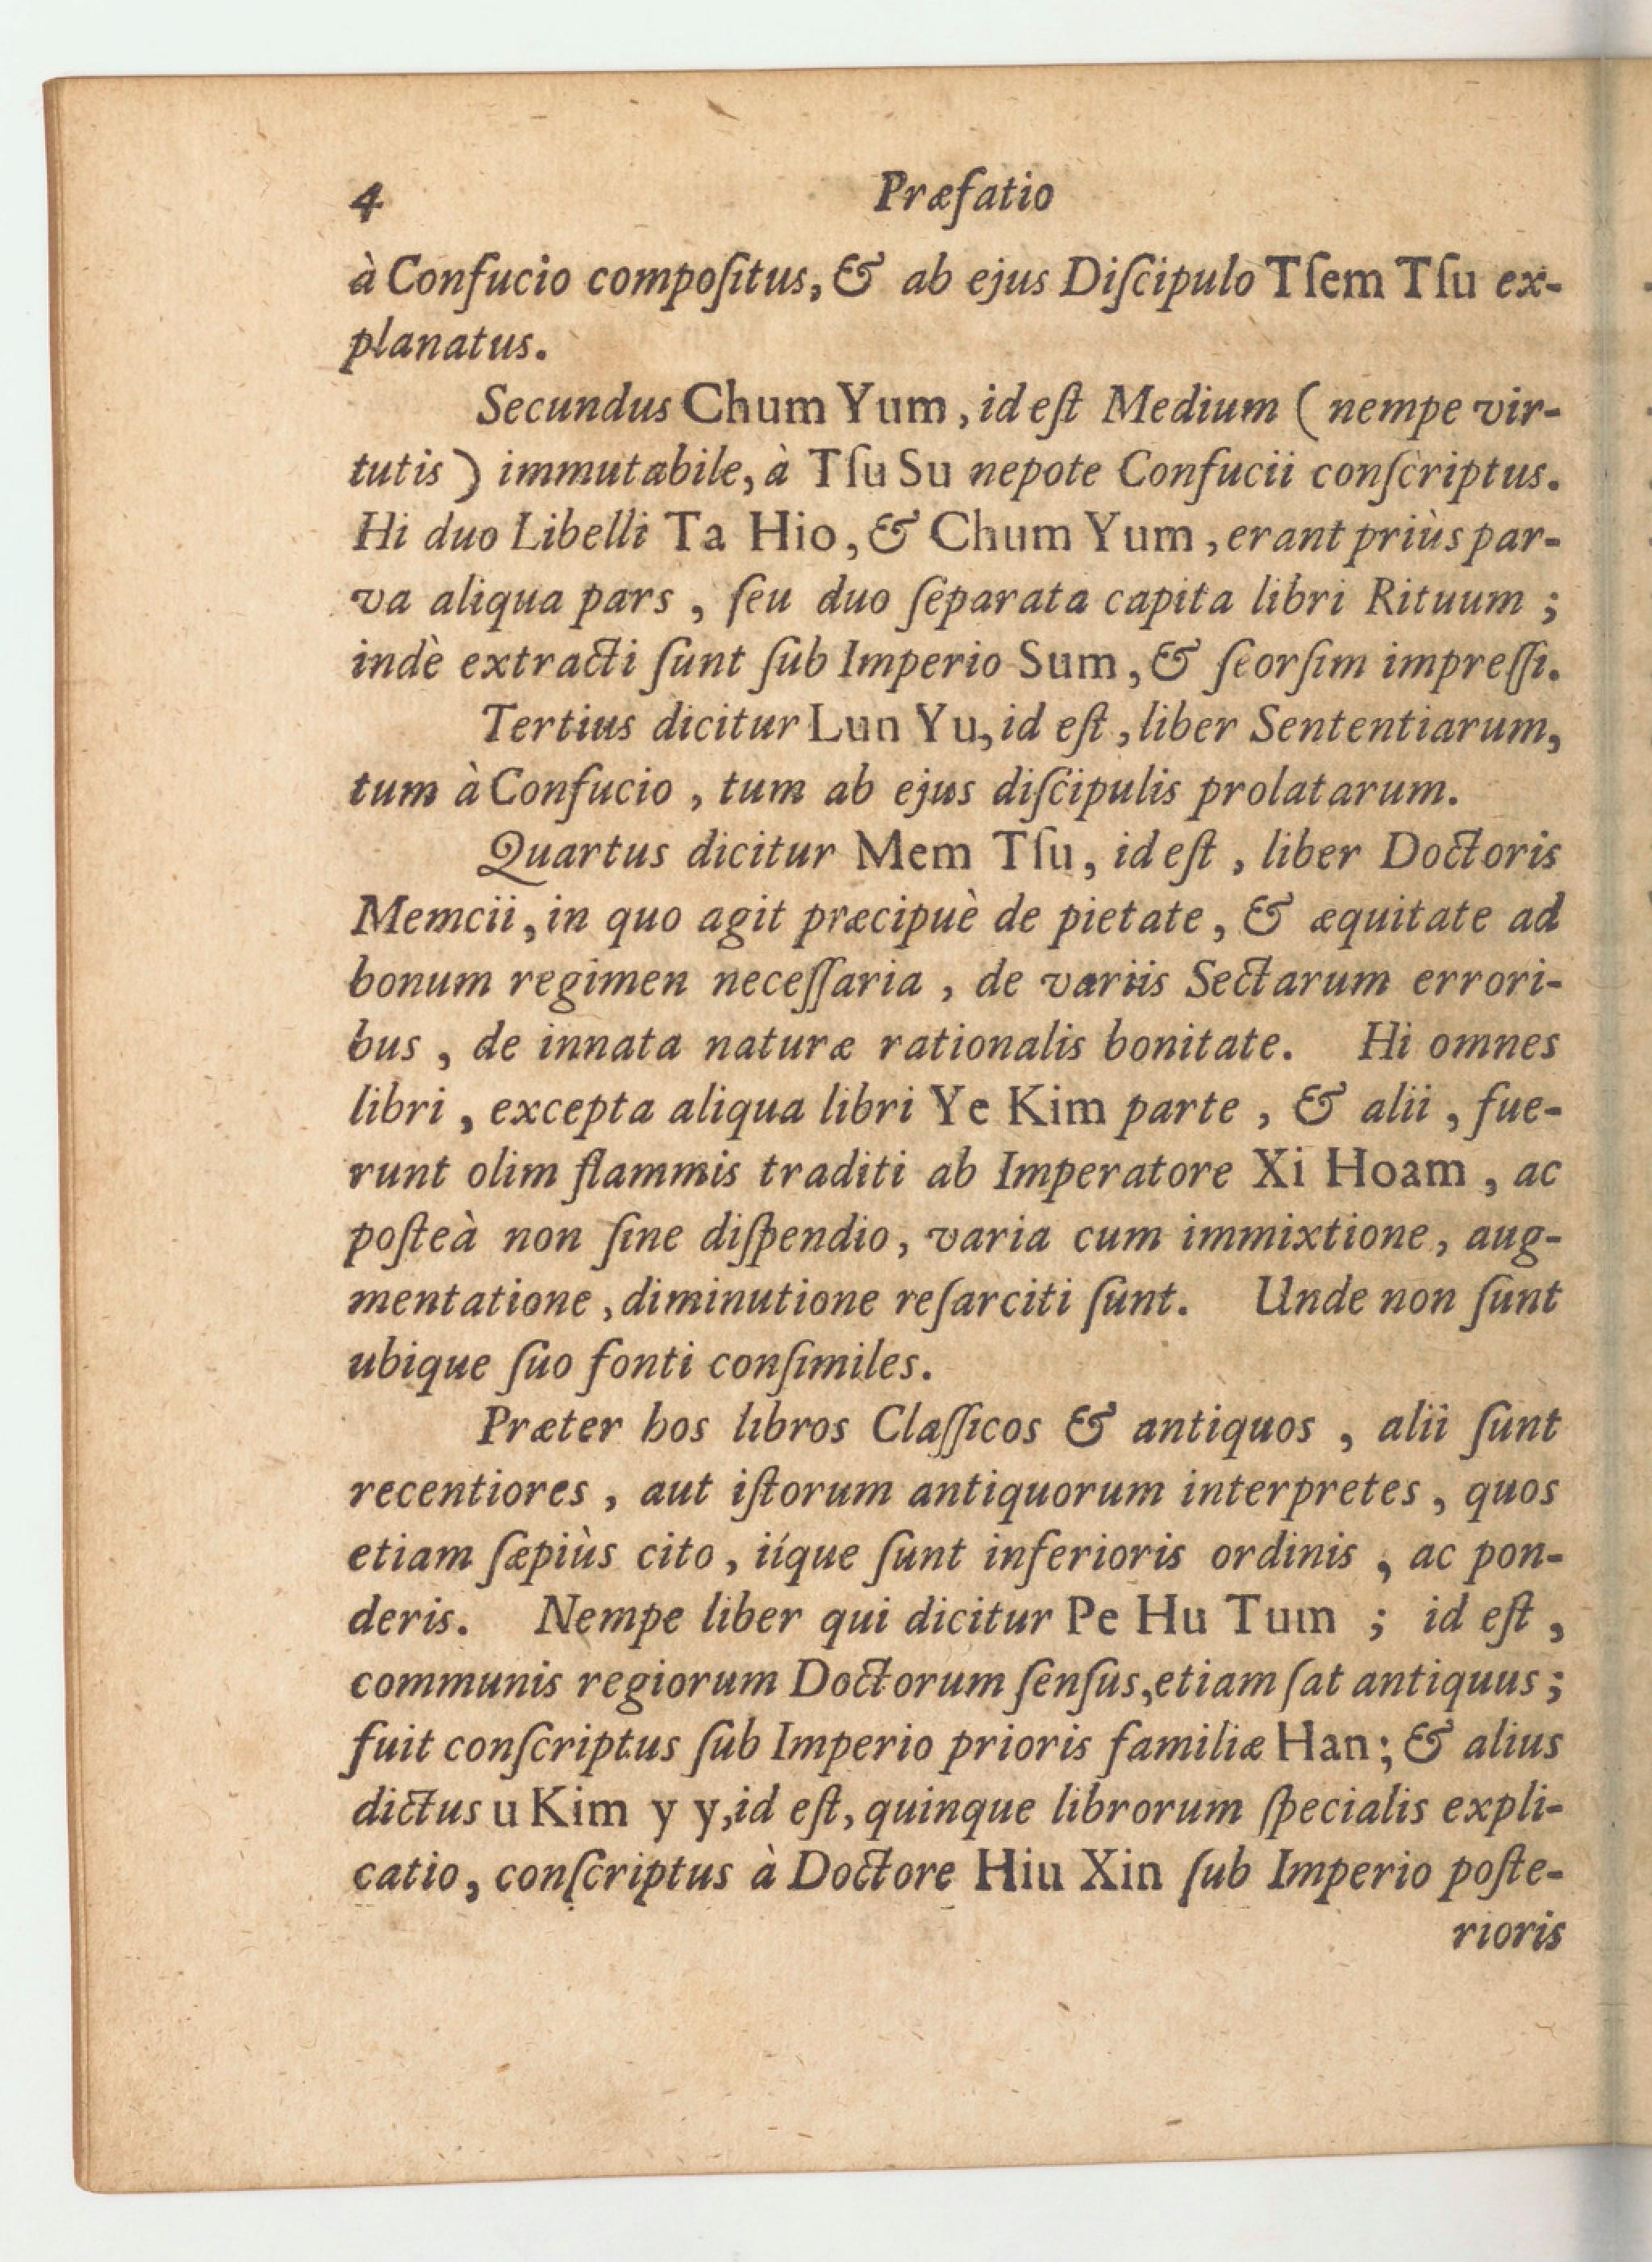 4 Præfatio
à Confucio compoſitus, & ab ejus Diſcipulo Tſem Tſu ex-
planatus.
Secundus Chum Yum, id eſt Medium ( nempe vir-
tutis ) immutabile, à Tſu Su nepote Confucii conſcriptus.
Hi duo Libelli Ta Hio, & Chum Yum, erant priùs par-
va aliqua pars, ſeu duo ſeparata capita libri Rituum ;
indè extracti ſunt ſub Imperio Sum, & ſeorſim impreſſi.
Tertius dicitur Lun Yu, id eſt, liber Sententiarum,
tum à Confucio, tum ab ejus diſcipulis prolatarum.
Quartus dicitur Mem Tſu, id eſt, liber Doctoris
Memcii, in quo agit præcipuè de pietate, & æquitate ad
bonum regimen neceſſaria, de variis Sectarum errori-
bus, de innata naturæ rationalis bonitate. Hi omnes
libri, excepta aliqua libri Ye Kim parte, & alii, fue-
runt olim flammis traditi ab Imperatore Xi Hoam, ac
poſteà non ſine diſpendio, varia cum immixtione, aug-
mentatione, diminutione reſarciti ſunt. Unde non ſunt
ubique ſuo fonti conſimiles.
Præter hos libros Claſſicos & antiquos, alii ſunt
recentiores, aut iſtorum antiquorum interpretes, quos
etiam ſæpiùs cito, iíque ſunt inferioris ordinis, ac pon-
deris. Nempe liber qui dicitur Pe Hu Tum ; id eſt,
communis regiorum Doctorum ſenſus, etiam ſat antiquus ;
fuit conſcriptus ſub Imperio prioris familiæ Han ; & alius
dictus u Kim y y, id eſt, quinque librorum ſpecialis expli-
catio, conſcriptus à Doctore Hiu Xin ſub Imperio poſte-
rioris